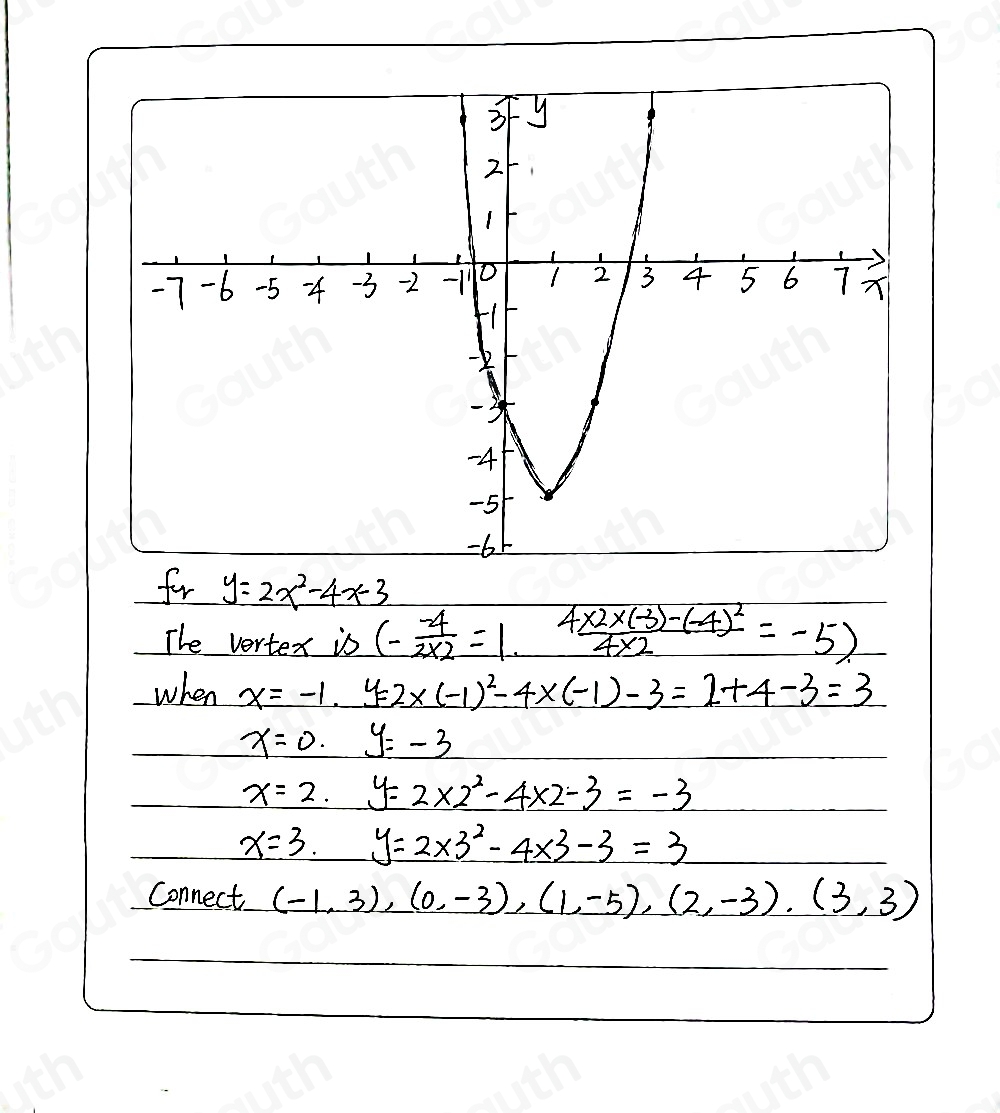 3 y
2
1
-7 -6 -5 -4 -3 -2 -1 0 1 2 3 4 5 6 7 x
-1
-2
-3
-4
-5
-6
for y=2x²-4x-3
The vertex is (-\frac{-4}{2×2}=1. \frac{4×2×(-3)-(-4)²}{4×2}=-5).
when x=-1. y=2×(-1)²-4×(-1)-3=2+4-3=3
x=0. y=-3
x=2. y=2×2²-4×2-3=-3
x=3. y=2×3²-4×3-3=3
Connect (-1,3), (0,-3), (1,-5), (2,-3). (3,3)
Gauth